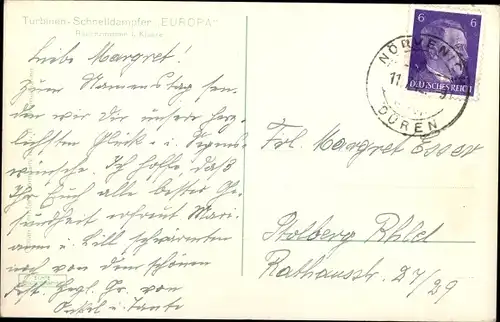 Turbinen-Schnelldampfer „EUROPA"
Liebe Margret!
Zum Namenstag sen-
den wir dir unsere herz-
lichsten Glück- u. Segens-
wünsche. Ich hoffe, daß
Ihr Euch alle bester Ge-
sundheit erfreut. Mari-
anne u. Lill schwärmten
noch von dem schönen
Fest. Herzl. Gr. von
Onkel u. Tante
6 6
DEUTSCHES REICH
NÖRVENICH
11
DÜREN
Frl. Margret Esser
Stolberg Rhld
Rathausstr. 27/29